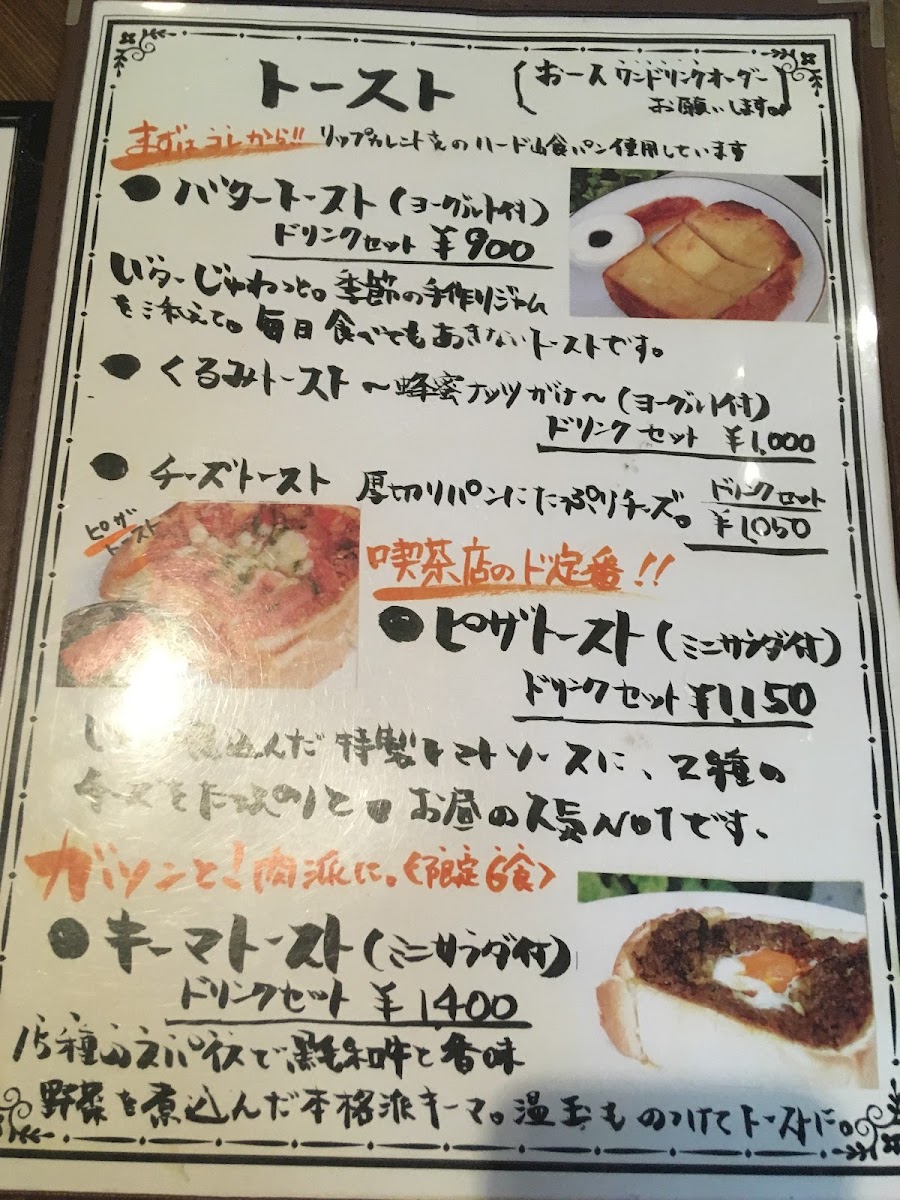 トースト
(お一人ワンドリンクオーダー
お願いします。)
まずはコレから!! リップカレントさんのハード山食パン使用しています
● バタートースト(ヨーグルト付)
ドリンクセット ¥900
バターじゅわっと。季節の手作りジャム
を添えて。毎日食べてもあきないトーストです。
● くるみトースト 〜蜂蜜ナッツがけ〜(ヨーグルト付)
ドリンクセット ¥1,000
● チーズトースト 厚切りパンにたっぷりチーズ。 ドリンクセット
¥1,050
ピザ
トースト
喫茶店のド定番!!
● ピザトースト(ミニサラダ付)
ドリンクセット ¥1,150
込んだ特製トマトソースに、2種の
チーズをたっぷりと。お昼の人気No1です。
ガツンと!肉派に。<限定6食>
● キーマトースト(ミニサラダ付)
ドリンクセット ¥1400
15種のスパイスで黒毛和牛と香味
野菜を煮込んだ本格派キーマ。温玉ものっけてトーストに。